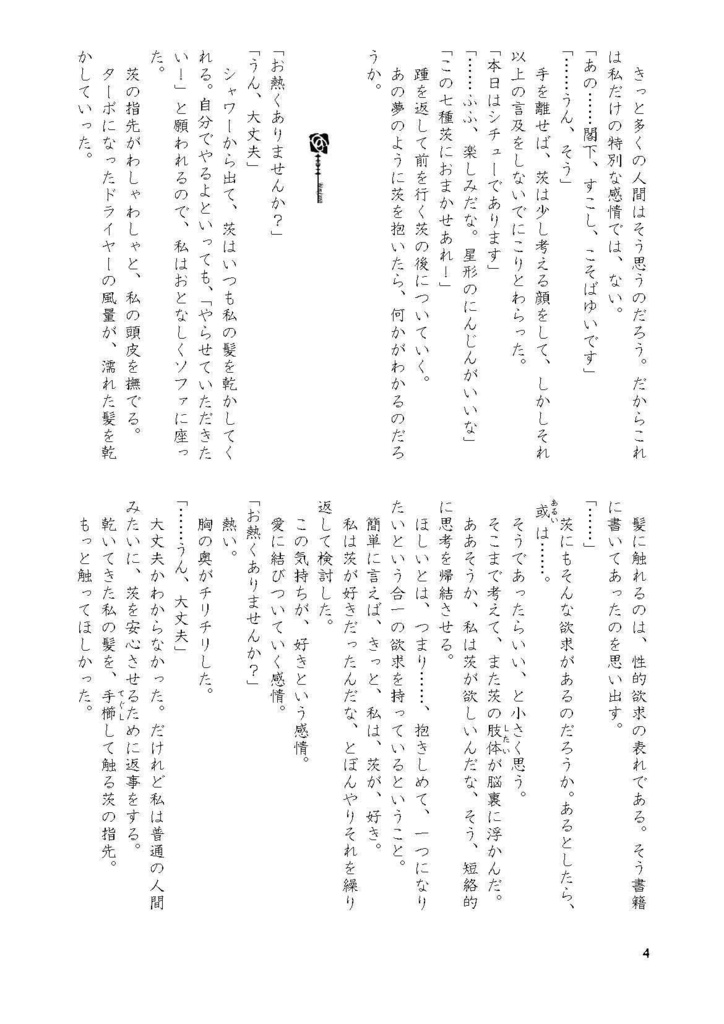 きっと多くの人間はそう思うのだろう。だからこれ
は私だけの特別な感情では、ない。
「あの……閣下、すこし、こそばゆいです」
「……うん、そう」
手を離せば、茨は少し考える顔をして、しかしそれ
以上の言及をしないでにこりとわらった。
「本日はシチューであります」
「……ふふ、楽しみだな。星形のにんじんがいいな」
「この七種茨におまかせあれー」
踵を返して前を行く茨の後についていく。
あの夢のように茨を抱いたら、何かがわかるのだろ
うか。
「お熱くありませんか？」
「うん、大丈夫」
シャワーから出て、茨はいつも私の髪を乾かしてく
れる。自分でやるよといっても、「やらせていただきた
いー」と願われるので、私はおとなしくソファに座っ
た。
茨の指先がわしゃわしゃと、私の頭皮を撫でる。
ターボになったドライヤーの風量が、濡れた髪を乾
かしていった。
髪に触れるのは、性的欲求の表れである。そう書籍
に書いてあったのを思い出す。
「……」
茨にもそんな欲求があるのだろうか。あるとしたら、
或あるいは……。
そうであったらいい、と小さく思う。
そこまで考えて、また茨の肢体したいが脳裏に浮かんだ。
ああそうか、私は茨が欲しいんだな、そう、短絡的
に思考を帰結させる。
ほしいとは、つまり……、抱きしめて、一つになり
たいという合一の欲求を持っているということ。
簡単に言えば、きっと、私は、茨が、好き。
私は茨が好きだったんだな、とぼんやりそれを繰り
返して検討した。
この気持ちが、好きという感情。
愛に結びついていく感情。
「お熱くありませんか？」
熱い。
胸の奥がチリチリした。
「……うん、大丈夫」
大丈夫かわからなかった。だけれど私は普通の人間
みたいに、茨を安心させるために返事をする。
乾いてきた私の髪を、手櫛てぐしして触る茨の指先。
もっと触ってほしかった。
4